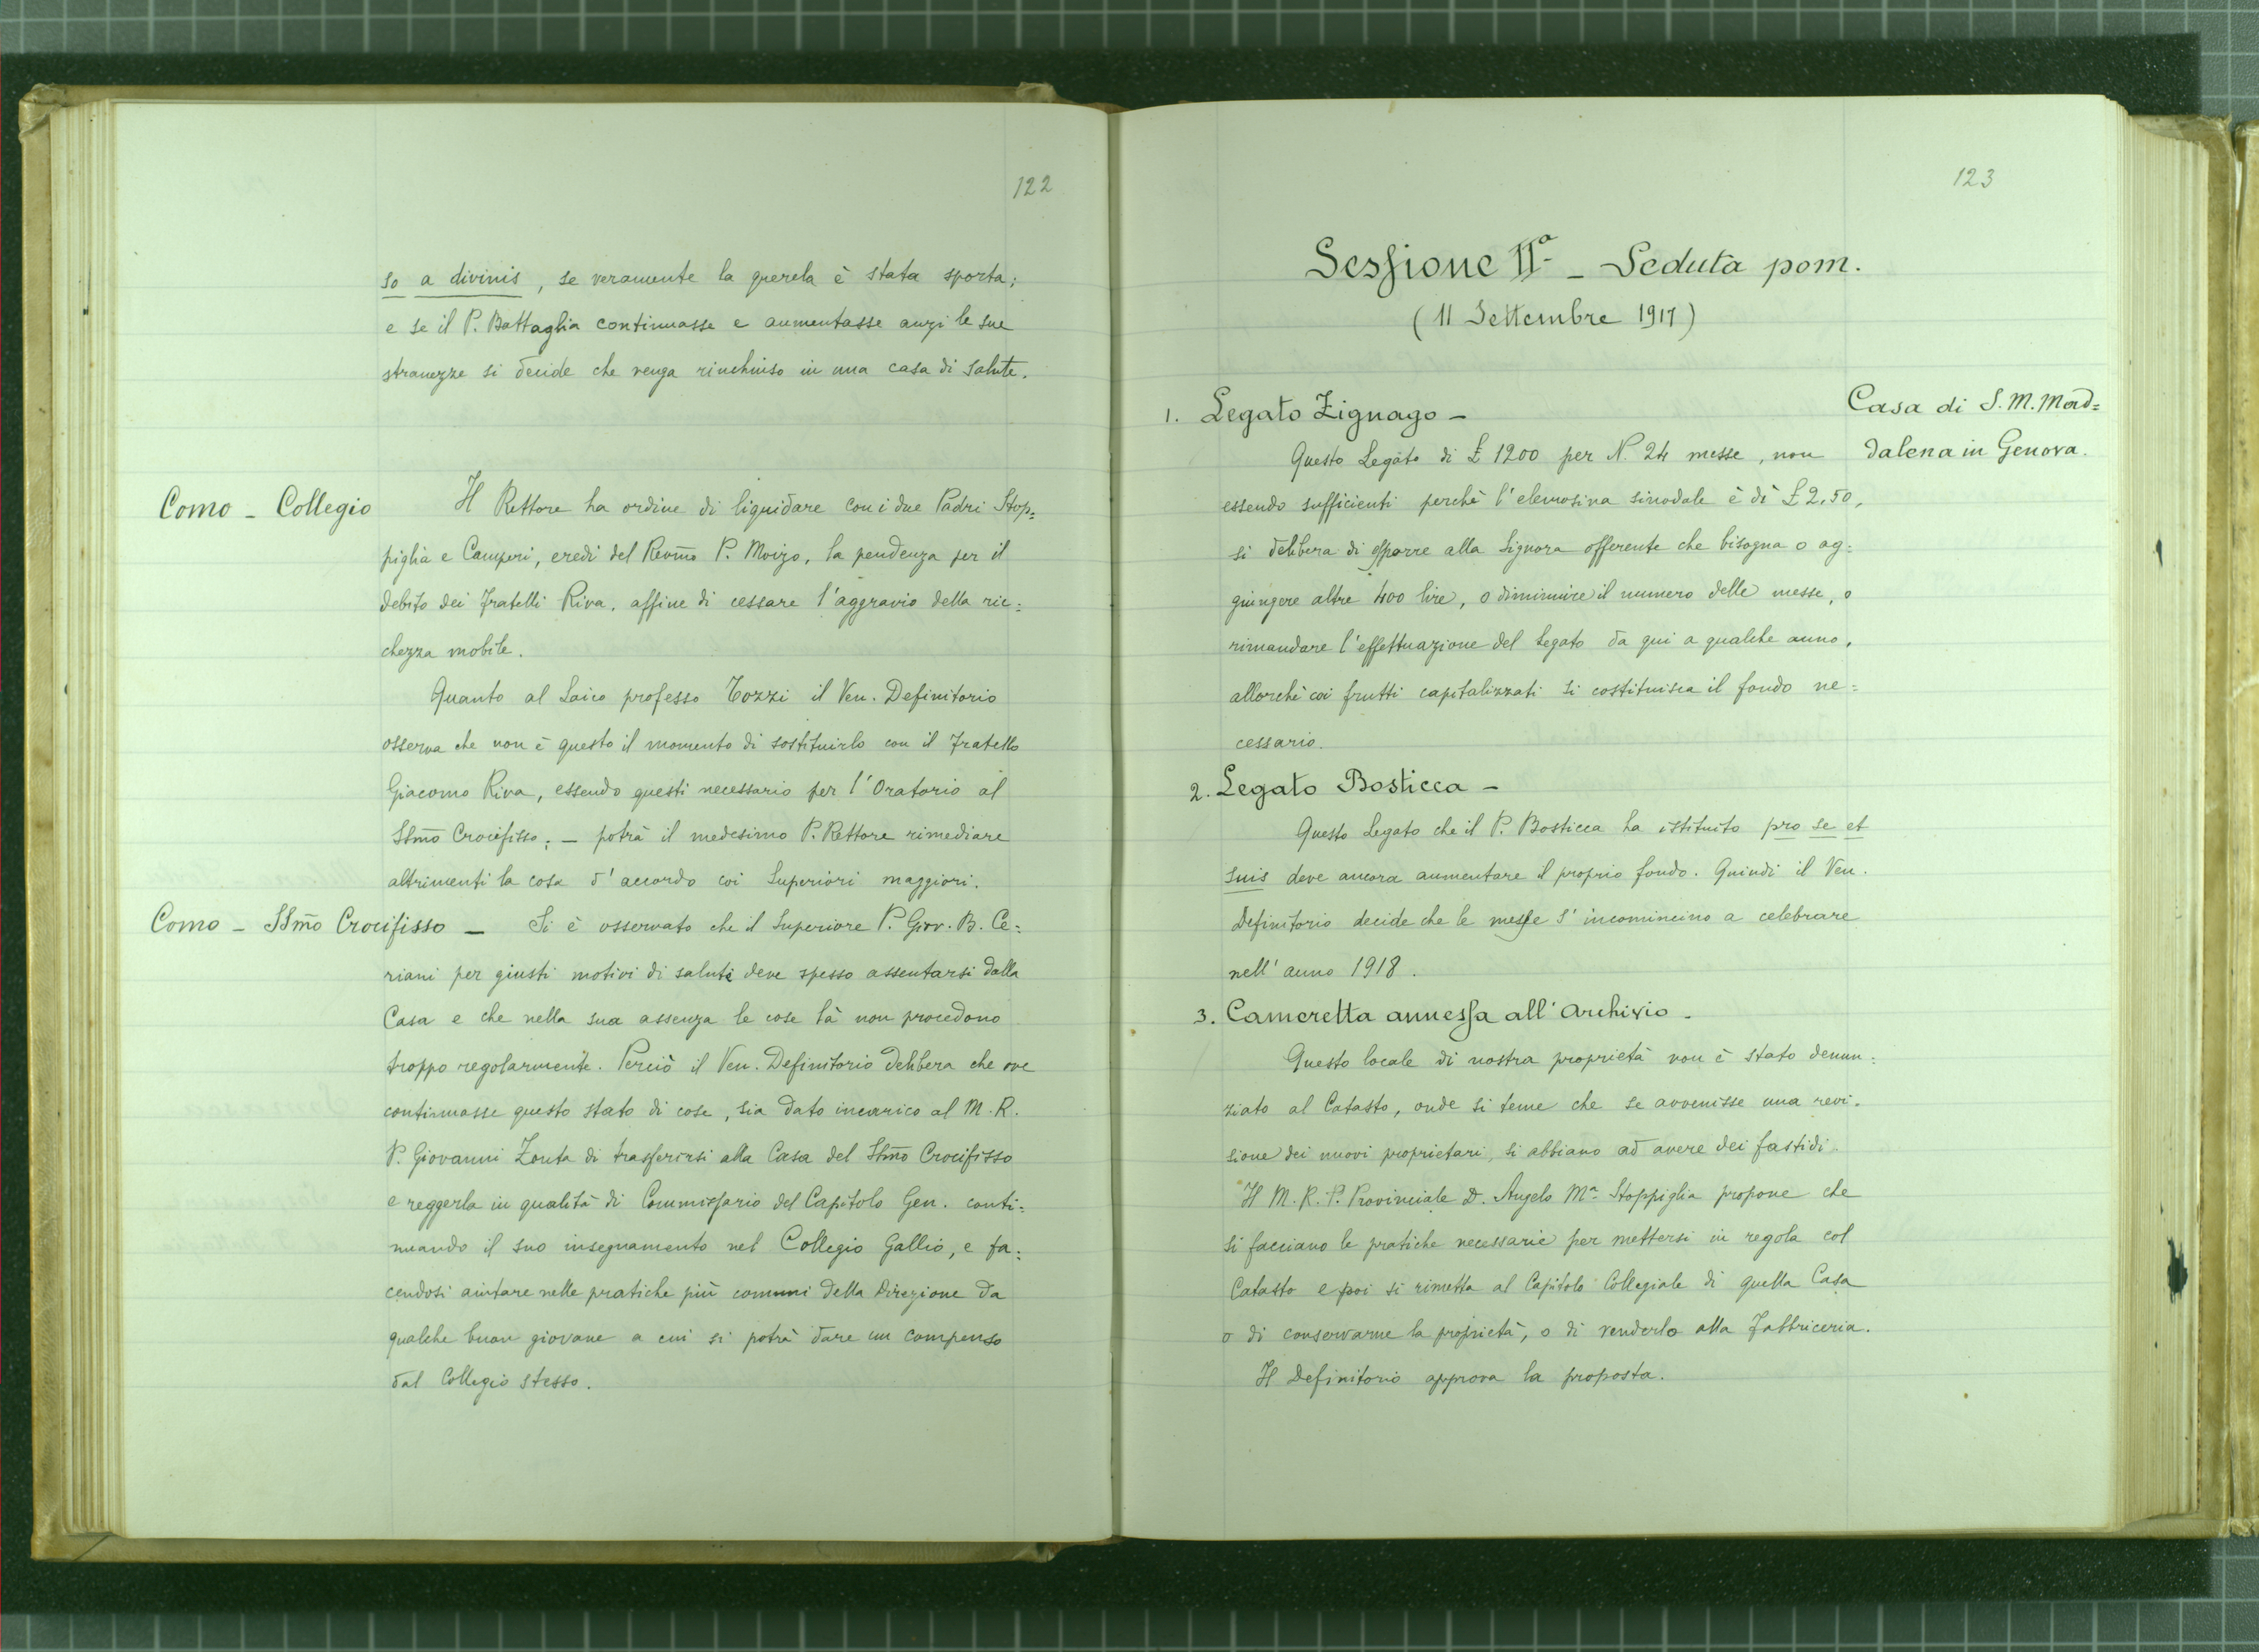 122
so a divinis, se veramente la querela è stata sporta;
e se il P. Battaglia continuasse e aumentasse anzi le sue
stranezze si decide che venga rinchiuso in una casa di salute.
Como - Collegio
Il Rettore ha ordine di liquidare con i due Padri Stop=
piglia e Camperi, eredi del Revm̃o P. Moizo, la pendenza per il
debito dei Fratelli Riva, affine di cessare l'aggravio della ric=
chezza mobile.
Quanto al Laico professo Tozzi il Ven. Definitorio
osserva che non è questo il momento di sostituirlo con il Fratello
Giacomo Riva, essendo questi necessario per l'Oratorio al
SSm̃o Crocifisso; - potrà il medesimo P. Rettore rimediare
altrimenti la cosa d'accordo coi Superiori maggiori.
Como - SSm̃o Crocifisso - Si è osservato che il Superiore P. Giov. B. Ce=
riani per giusti motivi di salute deve spesso assentarsi dalla
Casa e che nella sua assenza le cose là non procedono
troppo regolarmente. Perciò il Ven. Definitorio delibera che ove
continuasse questo stato di cose, sia dato incarico al M. R.
P. Giovanni Zonta di trasferirsi alla Casa del SSm̃o Crocifisso
e reggerla in qualità di Commissario del Capitolo Gen. conti=
nuando il suo insegnamento nel Collegio Gallio, e fa=
cendosi aiutare nelle pratiche più comuni della Direzione da
qualche buon giovane a cui si potrà dare un compenso
dal Collegio stesso.
123
Sessione IIª - Seduta pom.
(11 Settembre 1917)
Casa di S. M. Mad=
dalena in Genova.
1. Legato Zignago -
Questo Legato di £ 1200 per N. 24 messe, non
essendo sufficienti perchè l'elemosina sinodale è di £ 2,50,
si delibera di esporre alla Signora offerente che bisogna o ag=
giungere altre 400 lire, o diminuire il numero delle messe, o
rimandare l'effettuazione del Legato da qui a qualche anno,
allorchè coi frutti capitalizzati si costituisca il fondo ne=
cessario.
2. Legato Bosticca -
Questo Legato che il P. Bosticca ha istituito pro se et
suis deve ancora aumentare il proprio fondo. Quindi il Ven.
Definitorio decide che le messe s'incomincino a celebrare
nell'anno 1918.
3. Cameretta annessa all'Archivio -
Questo locale di nostra proprietà non è stato denun=
ziato al Catasto, onde si teme che se avvenisse una revi=
sione dei nuovi proprietari, si abbiano ad avere dei fastidi.
Il M. R. P. Provinciale D. Angelo Mª Stoppiglia propone che
si facciano le pratiche necessarie per mettersi in regola col
Catasto e poi si rimetta al Capitolo Collegiale di quella Casa
o di conservarne la proprietà, o di venderlo alla Fabbriceria.
Il Definitorio approva la proposta.